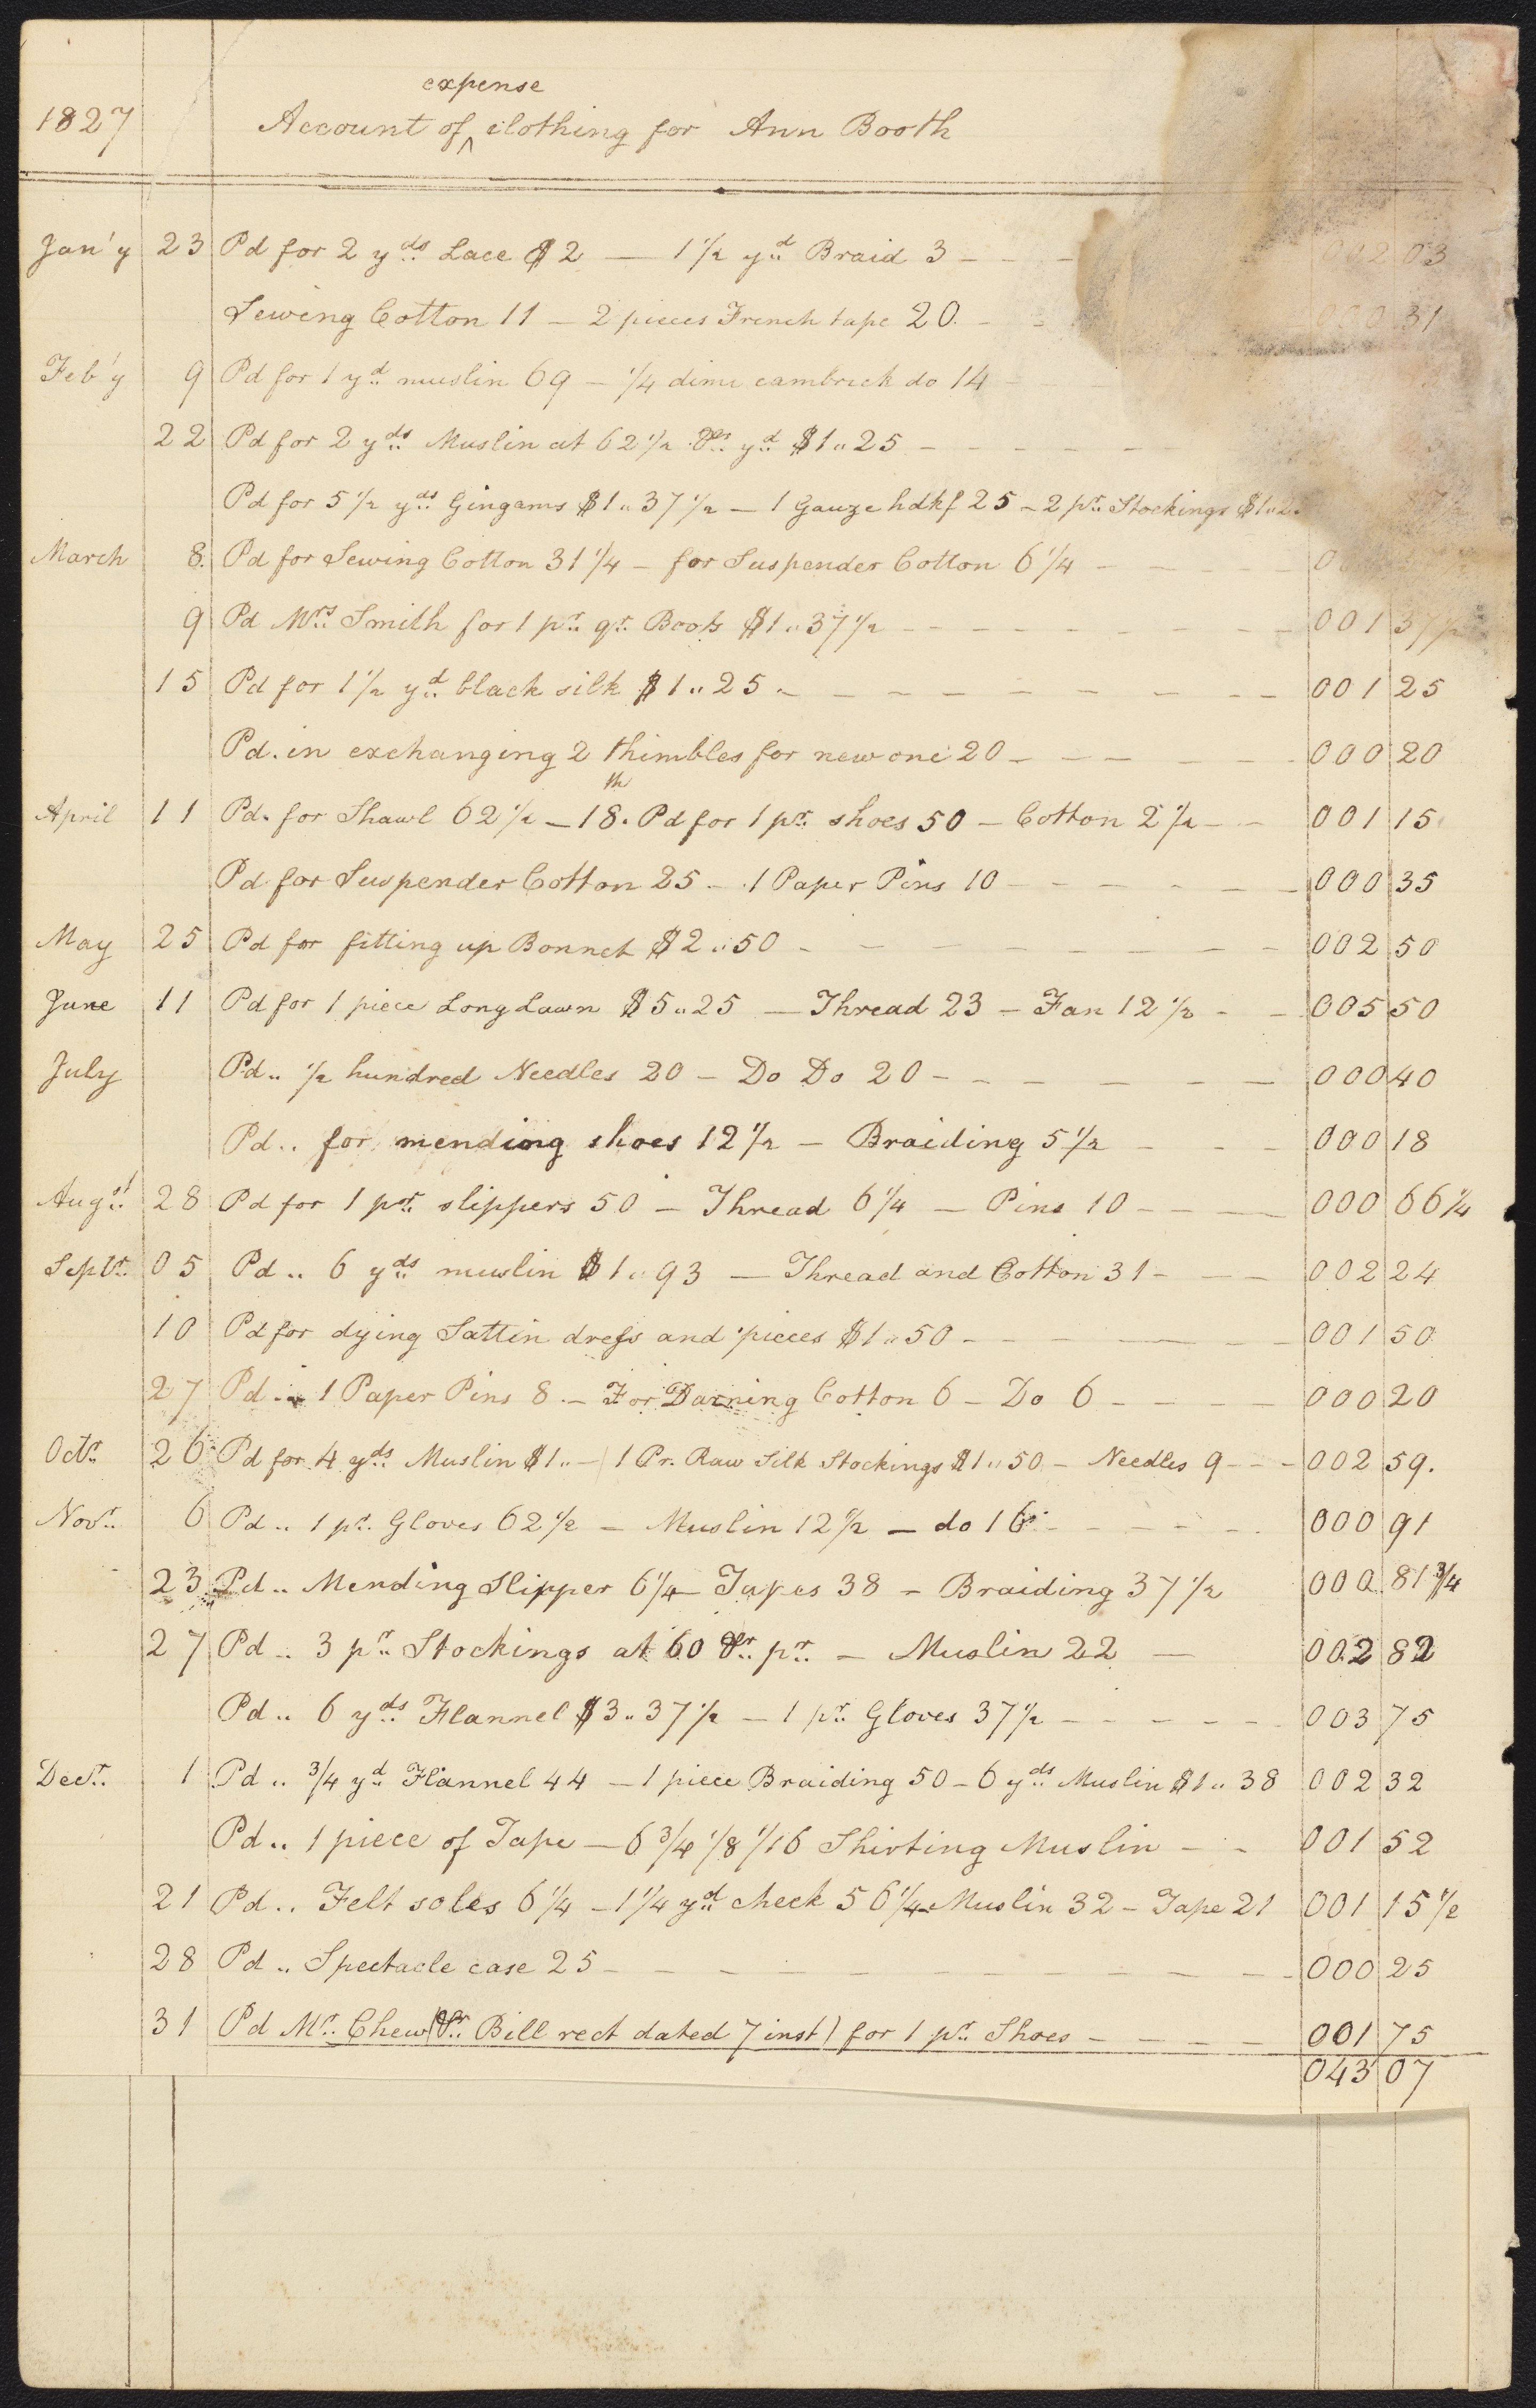 expense
1827 Account of ‸ clothing for Ann Booth
Jan'y 23 Pd for 2 yds Lace $2 — 1 1/2 yd Braid 3 - - - 002 03
Sewing Cotton 11 — 2 pieces French tape 20. - - 000 31
Feb'y 9 Pd for 1 yd muslin 69 — 1/4 dimi cambrick do 14 -
22 Pd for 2 yds Muslin at 62 1/2 Pr yd $1..25 - - - - - -
Pd for 5 1/2 yds Gingams $1..37 1/2 — 1 Gauze hdkf 25 - 2 pr Stockings
March 8. Pd for Sewing Cotton 31 1/4 - for Suspender Cotton 6 1/4 - - - - -
9 Pd Mrs Smith for 1 pr qr Boots $1..37 1/2 - - - - - - - - 001 37 1/2
15 Pd for 1 1/2 yd black silk $1..25 - - - - - - - - - 001 25
Pd. in exchanging 2 thimbles for new one 20 - - - - - - 000 20
April 11 Pd. for Shawl 62 1/2 - 18.th Pd for 1 pr shoes 50 - Cotton 2 1/2 - - 001 15
Pd for Suspender Cotton 25 - 1 Paper Pins 10 - - - - - - 000 35
May 25 Pd for fitting up Bonnet $2..50 - - - - - - - - 002 50
June 11 Pd for 1 piece Long Lawn $5..25 — Thread 23 - Fan 12 1/2 - - 005 50
July Pd.. 1/2 hundred Needles 20 - Do Do 20 - - - - - - - 000 40
Pd.. for mending shoes 12 1/2 - Braiding 5 1/2 - - - 000 18
Augst 28 Pd for 1 pr slippers 50 - Thread 6 1/4 - Pins 10 - - - 000 66 1/4
Septr 05 Pd.. 6 yds muslin $1..93 — Thread and Cotton 31 - - - 002 24
10 Pd for dying Sattin dress and pieces $1..50 - - - - - - 001 50
27 Pd.. 1 Paper Pins 8 - For Darning Cotton 6 - Do 6 - - - - 000 20
Octr 26 Pd for 4 yds Muslin $1.. - 1 Pr. Raw Silk Stockings $1..50 - Needles 9 - - - 002 59.
Novr 6 Pd.. 1 pr Gloves 62 1/2 - Muslin 12 1/2 - do 16 - - - - - 000 91
23 Pd.. Mending Slipper 6 1/4 - Tapes 38 - Braiding 37 1/2 000 81 3/4
27 Pd.. 3 pr Stockings at 60 Pr pr - Muslin 22 — 002 82
Pd.. 6 yds Flannel $3..37 1/2 - 1 pr Gloves 37 1/2 - - - - - 003 75
Decr 1 Pd.. 3/4 yd Flannel 44 - 1 piece Braiding 50 - 6 yds Muslin $1..38 002 32
Pd.. 1 piece of Tape - 6 3/4 1/8 1/16 Shirting Muslin - - 001 52
21 Pd.. Felt soles 6 1/4 - 1 1/4 yd check 56 1/4 - Muslin 32 - Tape 21 001 15 1/2
28 Pd.. Spectacle case 25 - - - - - - - - - 000 25
31 Pd Mr Chew (Pr Bill rect dated 7 inst) for 1 pr Shoes - - - - 001 75
043 07